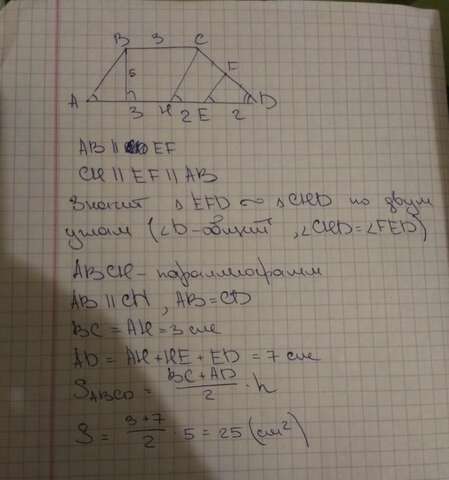 B 3 C
5 F
A 3 H 2 E 2 D
AB || EF
CH || EF || AB
Значит △EFD ∾ △CHD по двум
углам (∠D-общий, ∠CHD=∠FED)
ABCH - параллиограмм
AB || CH, AB=CD
BC = AH = 3 см
AD = AH+HE+ED = 7 см
S_ABCD = (BC+AD)/2 · h
S = (3+7)/2 · 5 = 25 (см²)